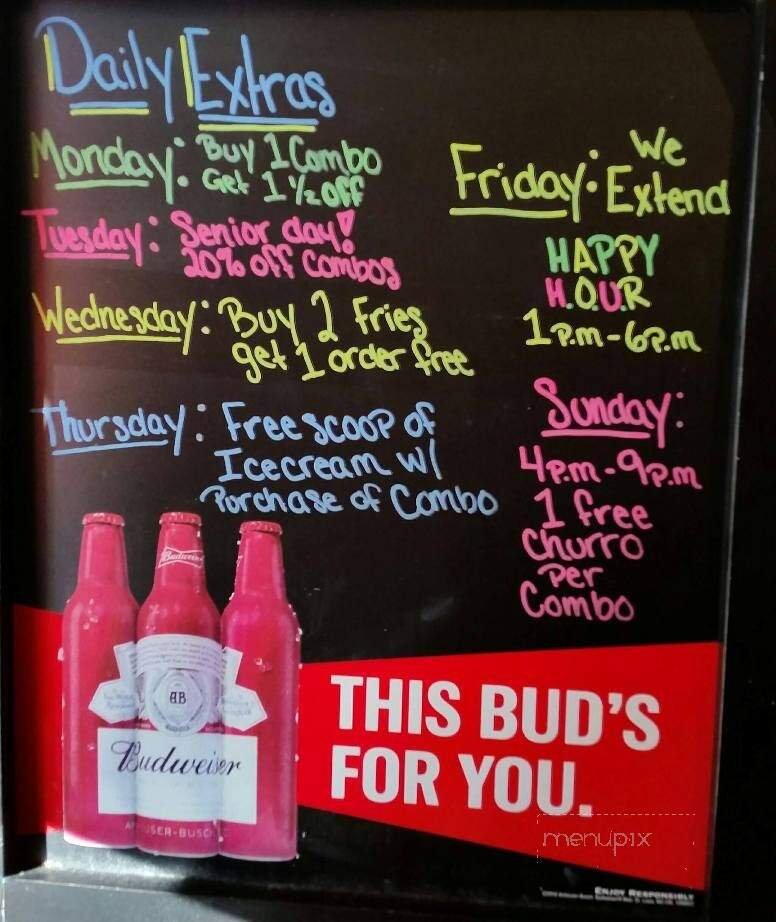 Daily Extras
Monday: Buy 1 Combo
Get 1 ½ off
Tuesday: Senior day!
20% off combos
Wednesday: Buy 2 Fries
get 1 order free
Thursday: Free scoop of
Icecream w/
Purchase of Combo
Friday: We
Extend
HAPPY
H.O.U.R
1 p.m - 6 p.m
Sunday:
4 p.m - 9 p.m
1 free
Churro
Per
Combo
Budweiser
AB
Budweiser
THIS BUD'S
FOR YOU.
menupix
ENJOY RESPONSIBLY